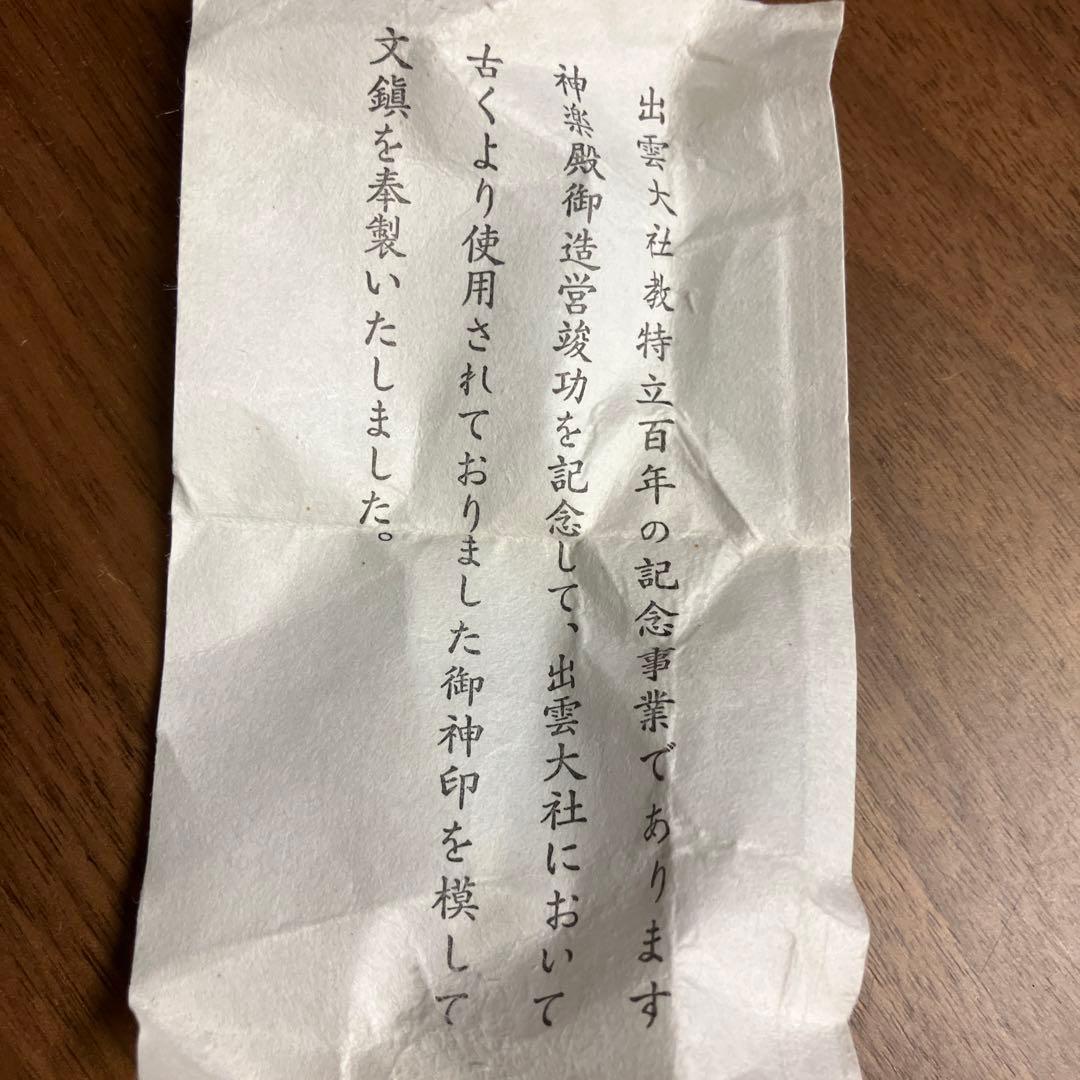 出雲大社教特立百年の記念事業であります
神楽殿御造営竣功を記念して、出雲大社において
古くより使用されておりました御神印を模して
文鎭を奉製いたしました。